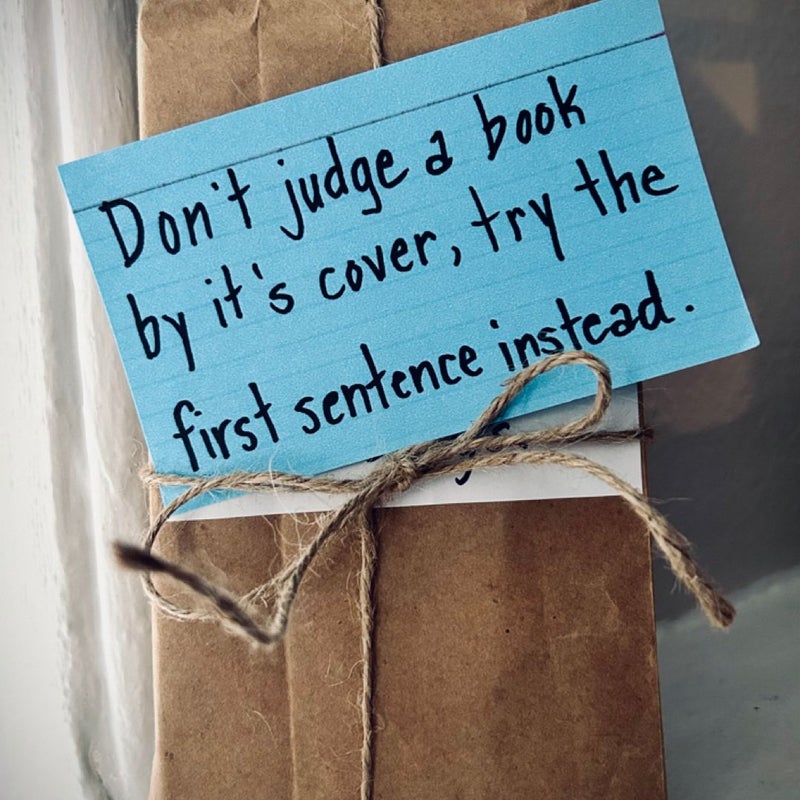 Don't judge a book
by it's cover, try the
first sentence instead.